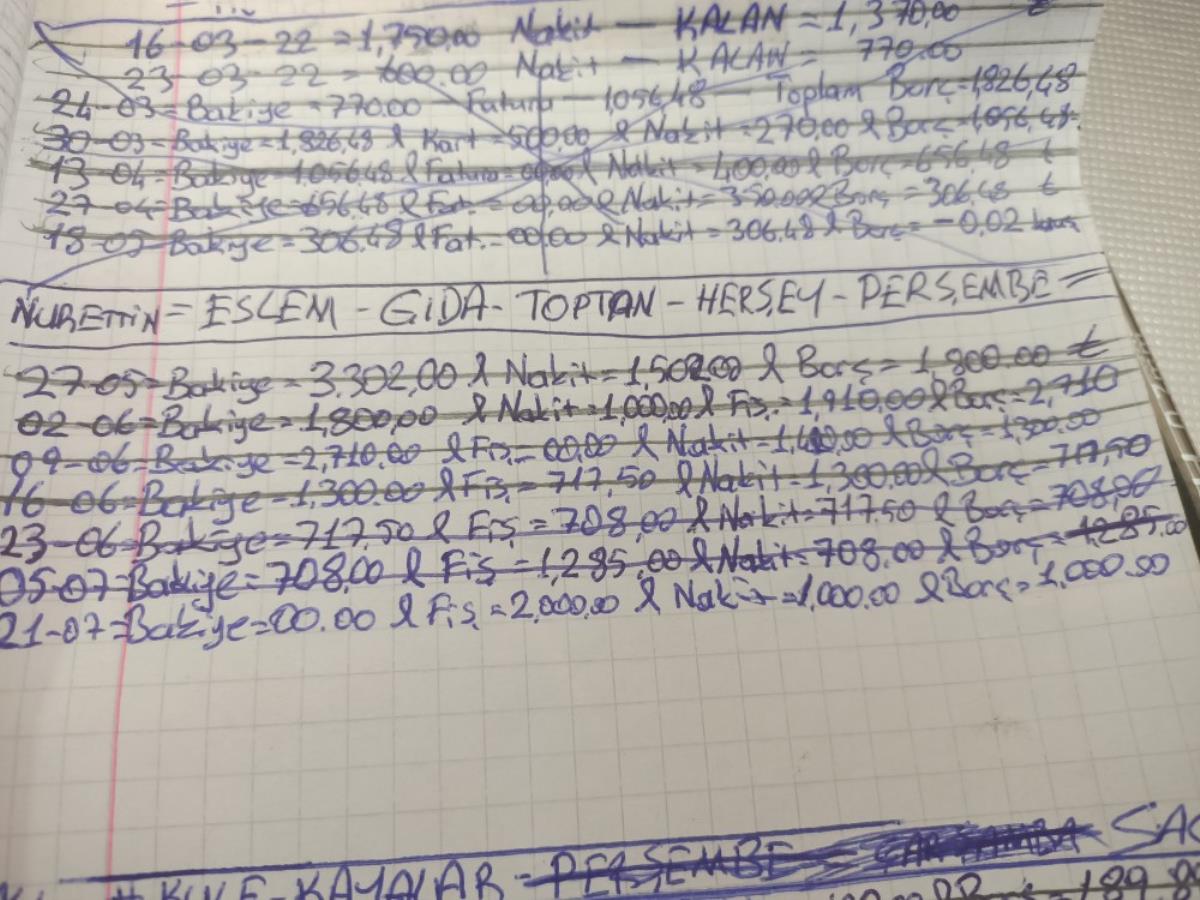 16-03-22 = 1,750.00 Nakit — KALAN = 1,370.00
23-03-22 = 600.00 Nakit — KALAN = 770.00
24-03= Bakiye = 770.00 - Fatura - 1,056.48 - Toplam Borç=1,826,48
30-03= Bakiye = 1,826,48 l Kart = 500,00 l Nakit = 270,00 l Borç = 1,056,48
13-04= Bakiye= 1,056,48 l Fatura= 00,00 l Nakit = 400,00 l Borç = 656,48 t
27-04= Bakiye = 656,48 l Fat. = 00,00 l Nakit = 350.00 l Borç = 306,48 t
18-05 Bakiye = 306,48 l Fat. = 00,00 l Nakit = 306,48 l Borç = -0,02
NURETTİN = ESLEM - GIDA - TOPTAN - HERŞEY - PERŞEMBE =
27-05= Bakiye = 3.302,00 l Nakit = 1,502,00 l Borç = 1,800.00 t
02-06= Bakiye = 1,800,00 l Nakit = 1,000,00 l Fiş = 1,910,00 l Borç = 2,710
09-06= Bakiye = 2,710,00 l Fiş = 00,00 l Nakit = 1,410,00 l Borç = 1,300.00
16-06= Bakiye = 1,300.00 l Fiş = 717,50 l Nakit = 1,300.00 l Borç = 717,50
23-06= Bakiye = 717,50 l Fiş = 708,00 l Nakit = 717.50 l Borç = 708,00
05-07= Bakiye = 708,00 l Fiş = 1,285,00 l Nakit = 708,00 l Borç = 1,285.00
21-07= Bakiye = 00.00 l Fiş = 2,000,00 l Nakit = 1,000.00 l Borç = 1,000.00
KAYALAR - PERŞEMBE ÇARŞAMBA
189,8